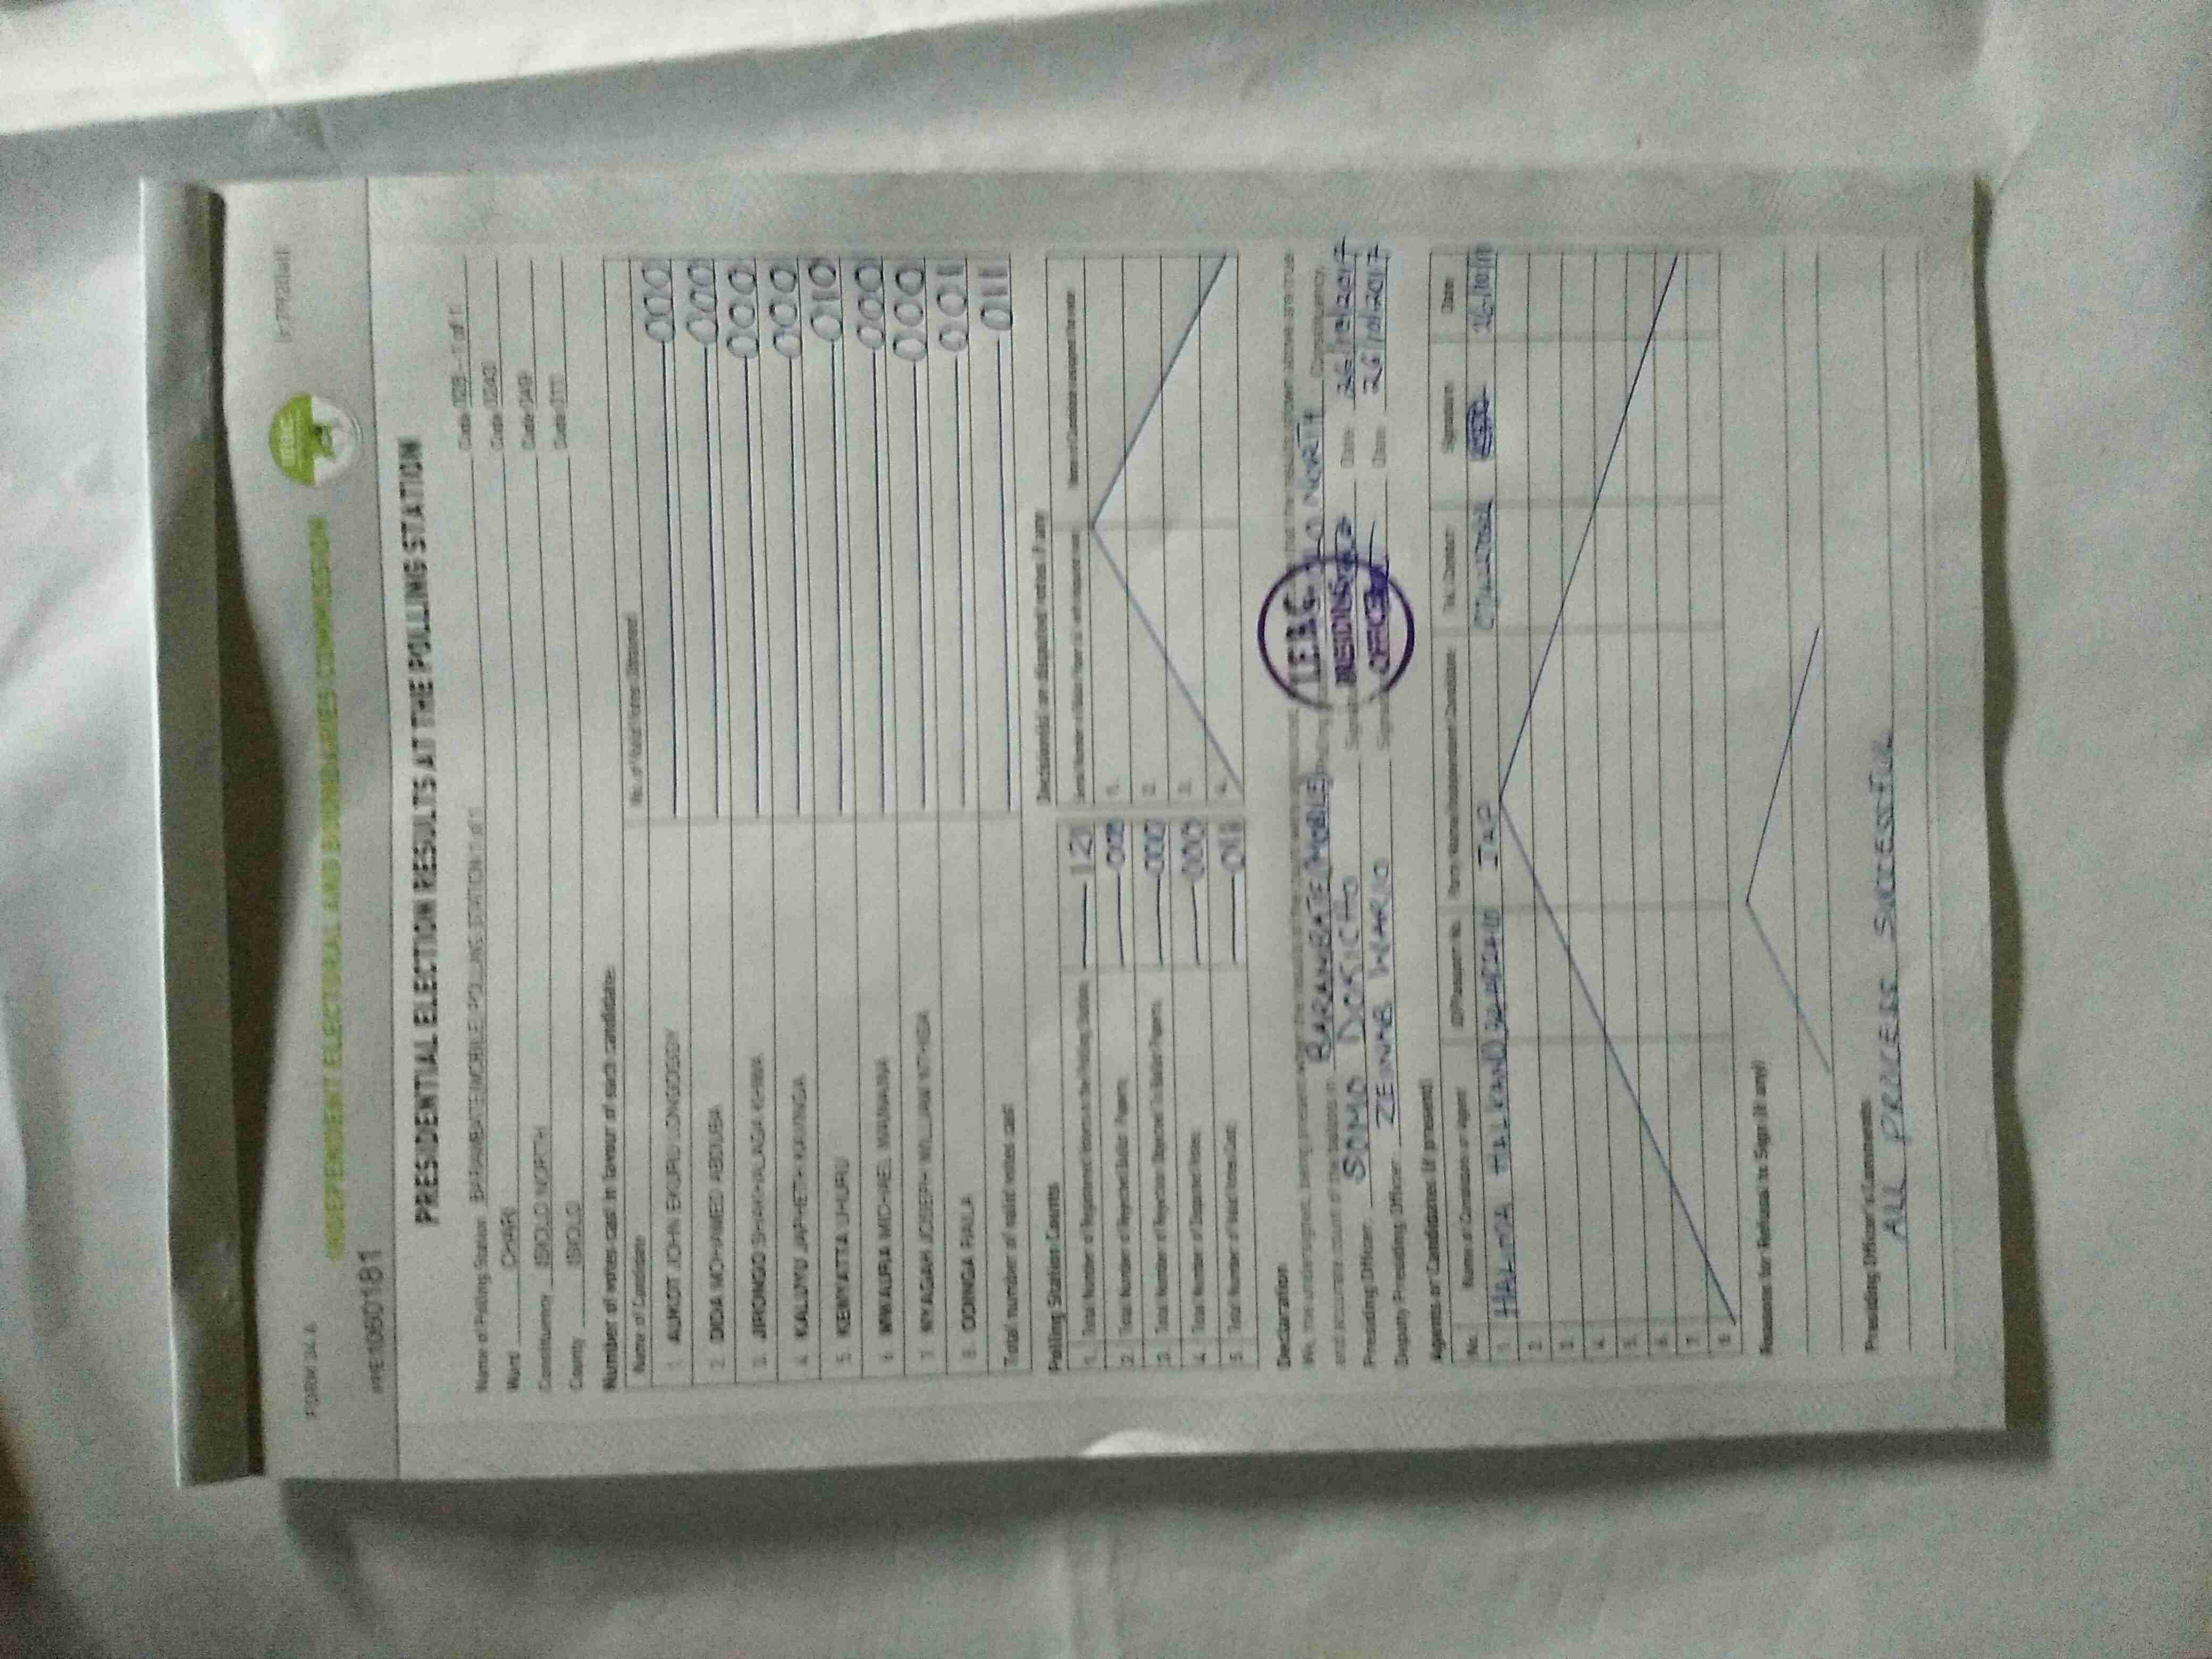 FORM 34 A
INDEPENDENT ELECTORAL AND BOUNDARIES COMMISSION
IEBC
PRE1060181
PRESIDENTIAL ELECTION RESULTS AT THE POLLING STATION
Name of Polling Station BARAMBATE/MOBILE POLLING STATION 1 of 1 Code 023 - 1 of 1
Ward CHARI Code 0243
Constituency ISIOLO NORTH Code 049
County ISIOLO Code 011
Number of votes cast in favour of each candidate:
Name of Candidate No. of Valid Votes Obtained
1. AUKOT JOHN EKURU LONGOGGY 000
2. DIDA MOHAMED ABDUBA 000
3. JIRONGO SHAKHALAGA KHWA 000
4. KALUYU JAPHETH KAVINGA 000
5. KENYATTA UHURU 010
6. MWAURA MICHAEL WAINAINA 000
7. NYAGAH JOSEPH WILLIAM NTHIGA 000
8. ODINGA RAILA 001
Total number of valid votes cast 011
Polling Station Counts
1. Total Number of Registered Voters in the Polling Station 121
2. Total Number of Rejected Ballot Papers
3. Total Number of Rejection Objected To Ballot Papers 000
4. Total Number of Disputed Votes 000
5. Total Number of Valid Votes Cast 011
Decision(s) on disputed votes if any
1.
2.
3.
4.
Declaration
We, the undersigned, being present
and accurate count of the ballots in BARAMBATE/MOBILE NORTH Constituency
Presiding Officer SOMO DOKICHO Date 26/10/2017
Deputy Presiding Officer ZEINAB WARIO Date 26/10/2017
IEBC
PRESIDING
OFFICER
Agents or Candidates (if present)
No. Name of Candidate or Agent ID/Passport No. Party Name/Independent Candidate Tel. Contact Signature Date
1. JAP
2.
3.
4.
5.
6.
7.
8.
Reasons for Refusal to Sign (if any)
Presiding Officer's Comments
ALL PROCESS SUCCESSFUL